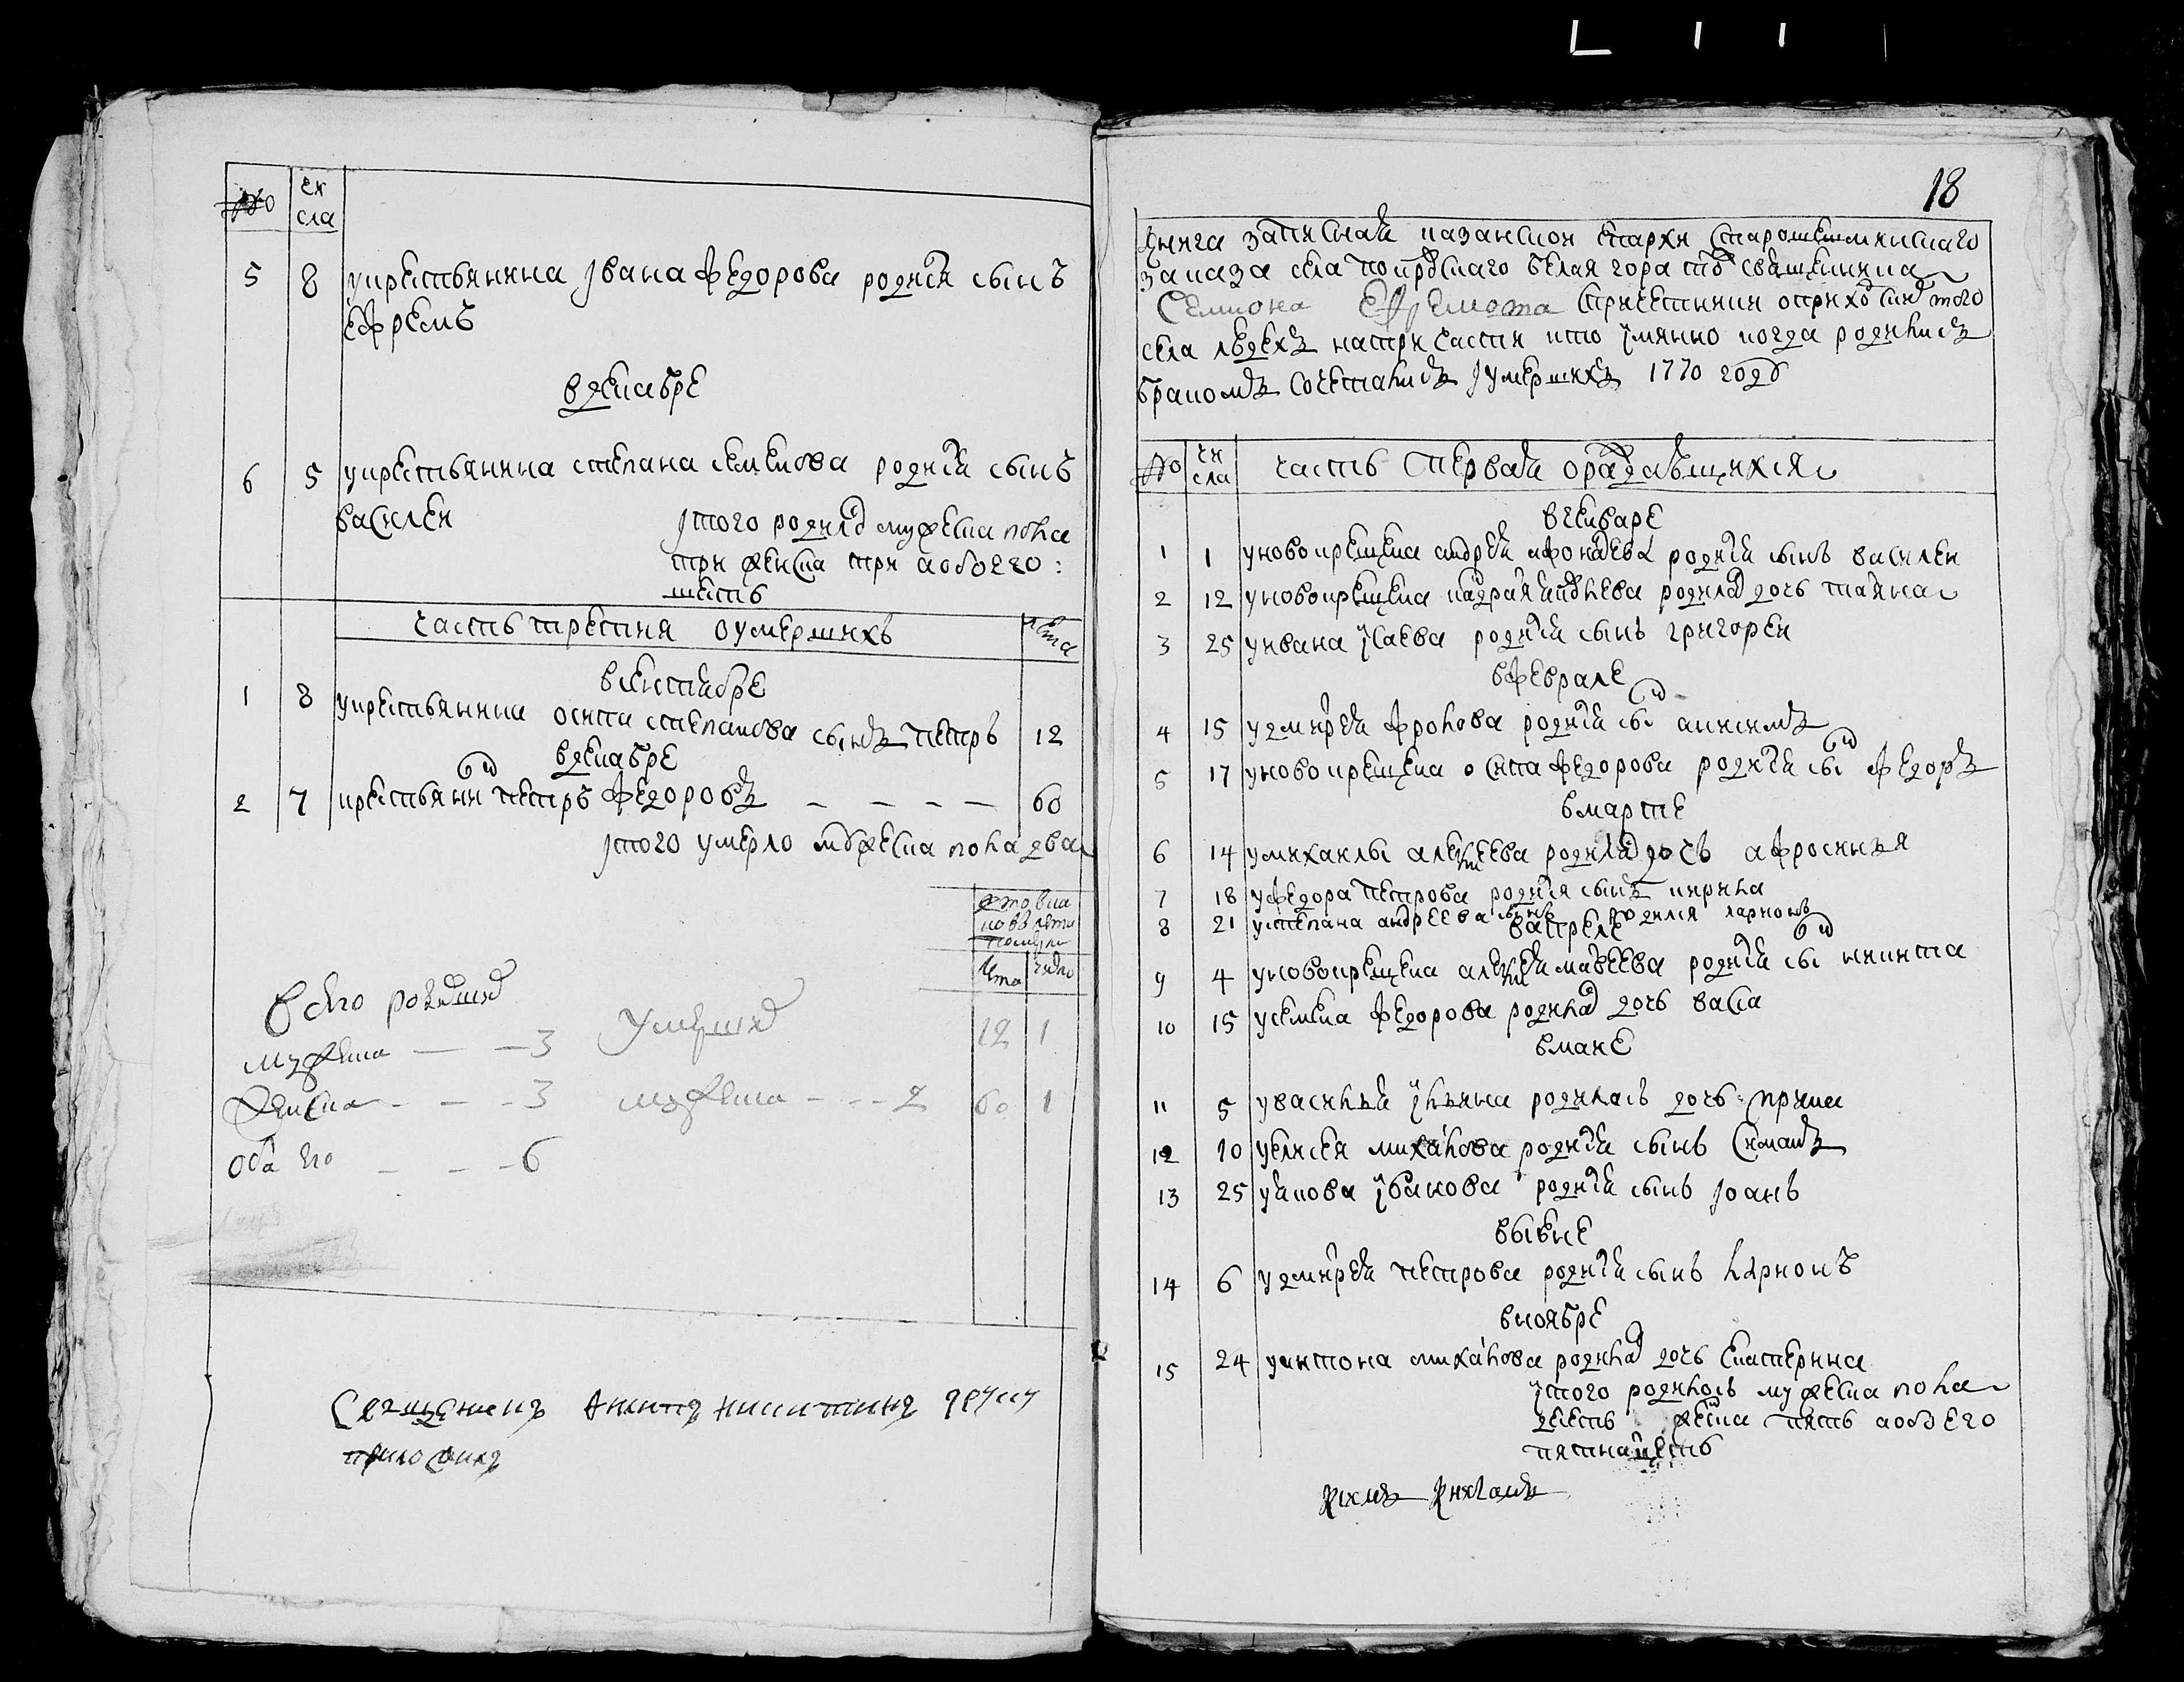 №
чи
сла
5 8 укрестьянина Iвана федорова родился сынъ
ефремъ
вдекабре
6 5 укрестьянина степана семенова родился сынъ
василеи
Iтого родилос мужеска пола
три женска три аобоего :
шесть
часть третия оумершихъ
лета
всентябре
1 8 укрестьянина осипа степанова сынъ петръ 12
вдекабре
2 7 крестьянинъ петръ федоровъ 60
Iтого умерло мужеска пола два
лета число
родившихся
мужеска 3
умерших
12 1
женска 3 мужеска 2 60 1
обоего 6
Священникъ никитинъ руку
приложилъ
18
Книга записная казанскои епархи старошешминскаго
заказа села покровскаго белая гора тож священника
Семиона Ефремова спричетники оприходских того
села людехъ натри части кто имянно когда родились
бракомъ сочетались Iумершихъ 1770 году
№
чи
сла
часть первая ораждающихся
вгенваре
1 1 уновокрещена андрея афонасева родился сынъ василеи
2 12 уновокрещена родилась дочь татяна
3 25 уивана Iсаева родился сынъ григореи
вфеврале
4 15 удмитрея фролова родился сынъ анисимъ
5 17 уновокрещена осипа федорова родился сынъ федоръ
вмарте
6 14 умихаилы алексеева родилась дочь афросинья
7 18 уфедора петрова родился сынъ кирила
8 21 устепана андреева сынъ родился ларионъ
вапреле
9 4 уновокрещена алексея матвеева родился сынъ никита
10 15 усемена федорова родилась дочь васса
вмаие
11 5 увасилья Iльина родилась дочь ирина
12 10 уелисея михаилова родился сынъ симанъ
13 25 уякова Iванова родился сынъ Iоанъ
виюне
14 6 удмитрея петрова родился сынъ ларионъ
вноябре
15 24 уантона михаилова родилась дочь екатерина
Iтого родилось мужеска пола
десеть женска пять аобоего
пятнацеть